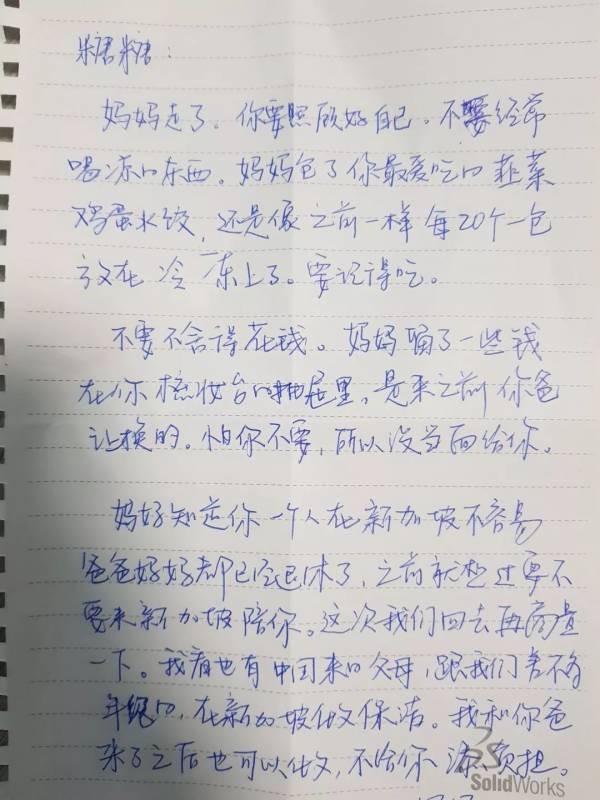 糖糖：
妈妈走了。你要照顾好自己。不要经常
喝冻的东西。妈妈包了你最爱吃的韭菜
鸡蛋水饺，还是像之前一样每20个一包
放在冷冻上了。要记得吃。
不要不舍得花钱。妈妈留了一些钱
在你梳妆台的抽屉里，是来之前你爸
让换的。怕你不要，所以没当面给你。
妈妈知道你一个人在新加坡不容易
爸爸妈妈都已经退休了，之前就想过要不
要来新加坡陪你。这次我们回去再商量
一下。我看也有中国来的父母，跟我们差不多
年纪的，在新加坡做保洁。我和你爸
来了之后也可以做，不给你添负担。
SolidWorks